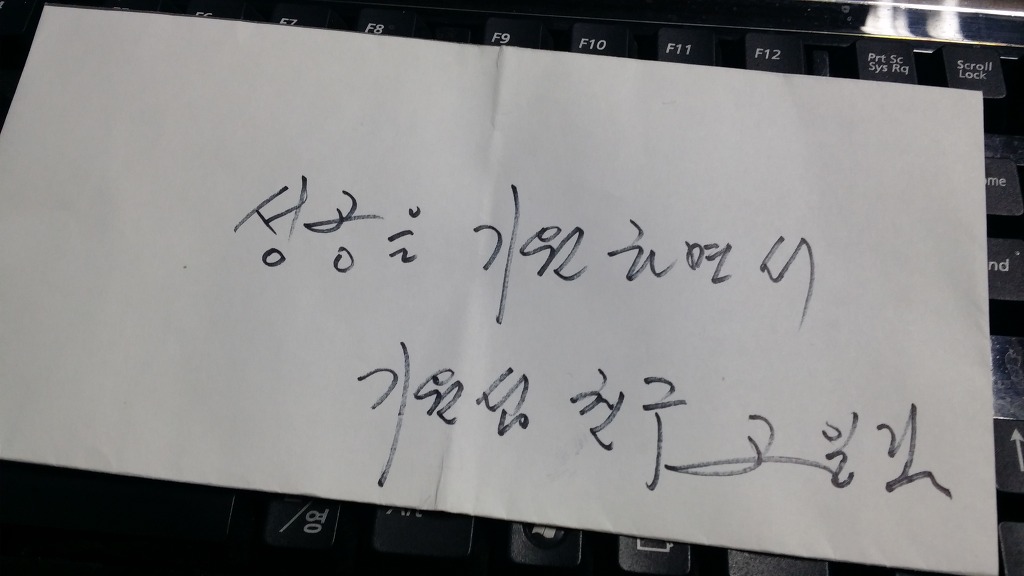 F7 F8 F9 F10 F11 F12 Prt Sc Scroll
Sys Rq Lock
성공을 기원하면서
기원섭 친구
/영